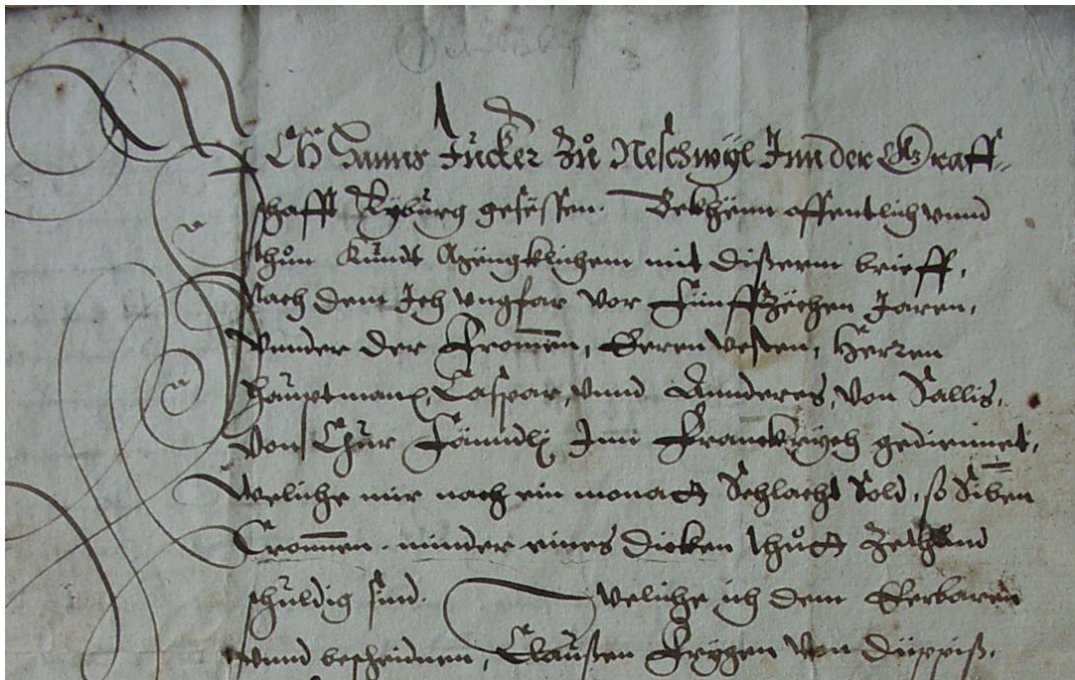 Ich Hanns Jucker Zů Neschwyl Inn der Graff-
schafft Kyburg gesessen. Bekhënn offentlich vnnd
thůn kundt Aƶëngklichem mit disserm brieff,
Nach dem Ich vngfar vor Fünffzëchen Jaren,
vnnder der Frommen, Eeren vesten, Herren
hauptmann Caspar, vnnd Annderes, von Sallis,
von Chur Fänndli Inn Franckrych gediennet,
weliche mir nach ein monatt Schlacht Sold, so Siben
Cronnen . minder eines dicken thůtt
schuldig sind. weliche ich dem Eerbaren
vnnd bescheidnen, Claussen Frygen von